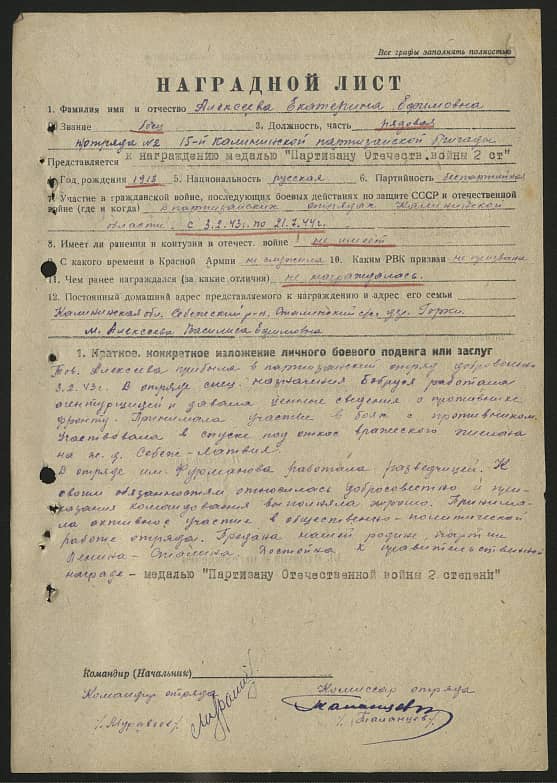 Все графы заполнять полностью
НАГРАДНОЙ ЛИСТ
1. Фамилия имя и отчество Алексеева Екатерина Ефимовна
2. Звание боец 3. Должность, часть рядовая
отряда №2 15-й Калининской партизанской бригады
Представляется к награждению медалью "Партизану Отечеств.войны 2 ст"
4. Год рождения 1918 5. Национальность русская 6. Партийность беспартийная
7. Участие в гражданской войне, последующих боевых действиях по защите СССР и отечественной
войне (где и когда) в партизанских отрядах Калининской
области, с 3.2.43г. по 21.7.44г.
8. Имеет ли ранения и контузии в отечест. войне не имеет
9. С какого времени в Красной Армии не служила 10. Каким РВК призван не призвана
11. Чем ранее награждался (за какие отличия) не награждалась.
12. Постоянный домашний адрес представляемого к награждению и адрес его семьи
Калининская обл. Себежский р-н, дер.
м. Алексеева Василиса Ефимовна
1. Краткое, конкретное изложение личного боевого подвига или заслуг
Тов. Алексеева прибыла в партизанский отряд добровольно
3.2.43г. В отряде спец. назначения Бобруся работала
агентурщицей и давала ценные сведения о противнике
фронту. Принимала участие в боях с противником.
Участвовала в спуске под откос вражеского эшелона
на ж.д. Себеж-Латвия.
В отряде им. Фурманова работала разведчицей. К
своим обязанностям относилась добросовестно и при-
казания командования выполняла хорошо. Принима-
ла активное участие в общественно-политической
работе отряда. Предана нашей родине, партии
Ленина-Сталина. Достойна к правительственной
награде - медалью "Партизану Отечественной войны 2 степени"
Командир (Начальник)
Командир отряда Комиссар отряда
/Муравьев/ /Тананцев/